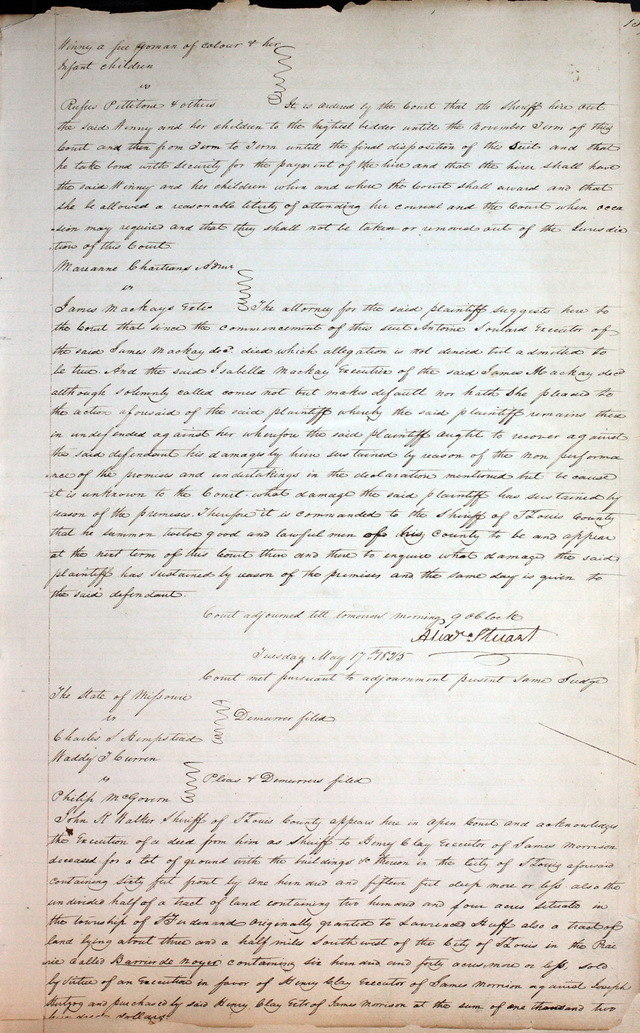 Winny a free woman of colour & her
Infant children
vs
Rufus Pettibone & others It is ordered by the Court that the Sheriff hire out
the said Winny and her children to the highest bidder untill the November Term of this
Court and then from Term to Term untill the final disposition of the Suit and that
he take bond with security for the payment of the hire and that the hirer shall have
the said Winny and her children when and where the Court shall award and that
she be allowed a reasonable liberty of attending her counsel and the Court when occa
sion may require and that they shall not be taken or removed out of the Jurisdic
tion of this Court.
Mareanne Chartrans Admr
vs
James Mackays Exrs The attorney for the said plaintiff suggests here to
the Court that since the commencement of this suit Antoine Soulard Executor of
the said James Mackay decd died which allegation is not denied but admitted to
be true. And the said Isabella Mackay Executrix of the said James Mackay decd
although solemnly called comes not but makes default nor hath she pleaded to
the action aforesaid of the said plaintiff whereby the said plaintiff remains there
in undefended against her wherefore the said plaintiff aught to recover against
the said defendant his damages by him sustained by reason of the non performa
nce of the promises and undertakings in the declaration mentioned but be cause
it is unknown to the Court what damage the said plaintiff has sustained by
reason of the premises. Therefore it is commanded to the Sheriff of St Louis County
that he summon twelve good and lawful men of his County to be and appear
at the next term of this Court then and there to enquire what damage the said
plaintiff has sustained by reason of the premises and the same day is given to
the said defendant.
Court adjourned till tomorrow morning 9 oClock
Alexr Stuart
Tuesday May 17th 1825
Court met pursuant to adjournment present Same Judge
The State of Missouri
vs Demurrer filed
Charles S Hempstead
Waddy T Curren
vs Pleas & Demurrers filed
Philip McGovern
John K Walker Sheriff of St Louis County appears here in open Court and acknowledges
the Execution of a deed from him as Sheriff to Henry Clay Executor of James Morrison
deceased for a lot of ground with the buildings &c thereon in the City of St Louis aforesaid
containing sixty feet front by one hundred and fifteen feet deep more or less also the
undivided half of a tract of land containing two hundred and four acres situate in
the township of St Ferdinand originally granted to Laurence Huff also a tract of
land lying about three and a half miles South west of the City of St Louis in the Prai
rie Called Barrier de Noyer containing six hundred and forty acres more or less, sold
by virtue of an Execution in favor of Henry Clay Executor of James Morrison against Joseph
and purchased by said Henry Clay Exr of James Morrison at the sum of one thousand two
hundred dollars